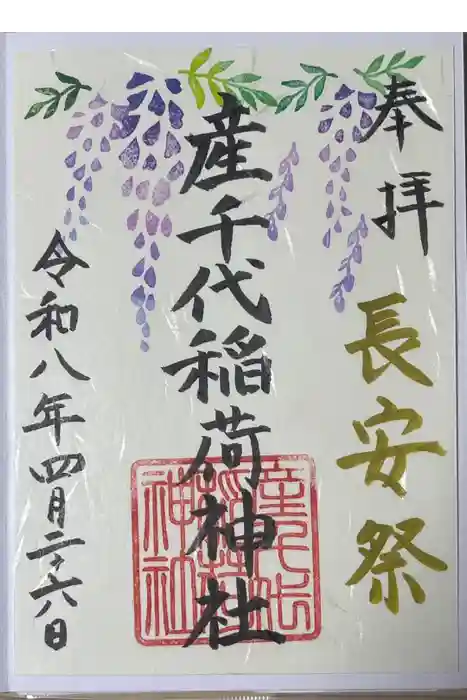 奉拝
長安祭
産千代稲荷神社
令和八年四月二六日
産千代
稲荷
神社